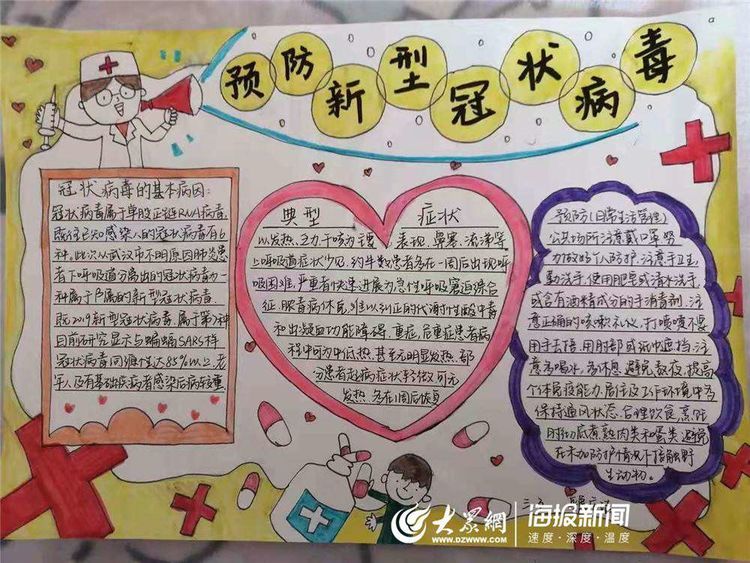 预防新型冠状病毒
冠状病毒的基本病因:
冠状病毒属于单股正链RNA病毒,
既往已知感染人的冠状病毒有6
种,此次从武汉市不明原因肺炎患
者下呼吸道分离出的冠状病毒为一
种属于β属的新型冠状病毒
既2019新型冠状病毒,属于第7种
目前研究显示与蝙蝠SARS样
冠状病毒同源性达85%以上,老
年人及有基础疾病者感染后病情较重
典型 症状
以发热、乏力、干咳为主要 表现,鼻塞、流涕等
上呼吸道症状少见,约半数患者多在一周后出现呼
吸困难,严重者快速进展为急性呼吸窘迫综合
征、脓毒病休克,难以纠正的代谢性酸中毒
和出凝血功能障碍,重症,危重症患者病
程中可为中低热,甚至无明显发热,部
分患者起病症状轻微,可无
发热,多在1周后恢复
预防(日常生活管理)
公共场所注意戴口罩努
力做好个人防护,注意手卫生,
勤洗手,使用肥皂或清水洗手,
或含有油精成分的手消毒剂,注
意正确的咳嗽礼仪,打喷嚏不要
用手去捂,用肘部或纸巾遮挡,注
意多喝水,多休息,避免熬夜,提高
个体免疫能力,居住及工作环境中多
保持通风状态,合理饮食,烹饪
时彻底煮熟肉类和蛋类,避免
在未加防护情况下接触野
生动物。
大众网
WWW.DZWWW.COM
海报新闻
速度·深度·温度